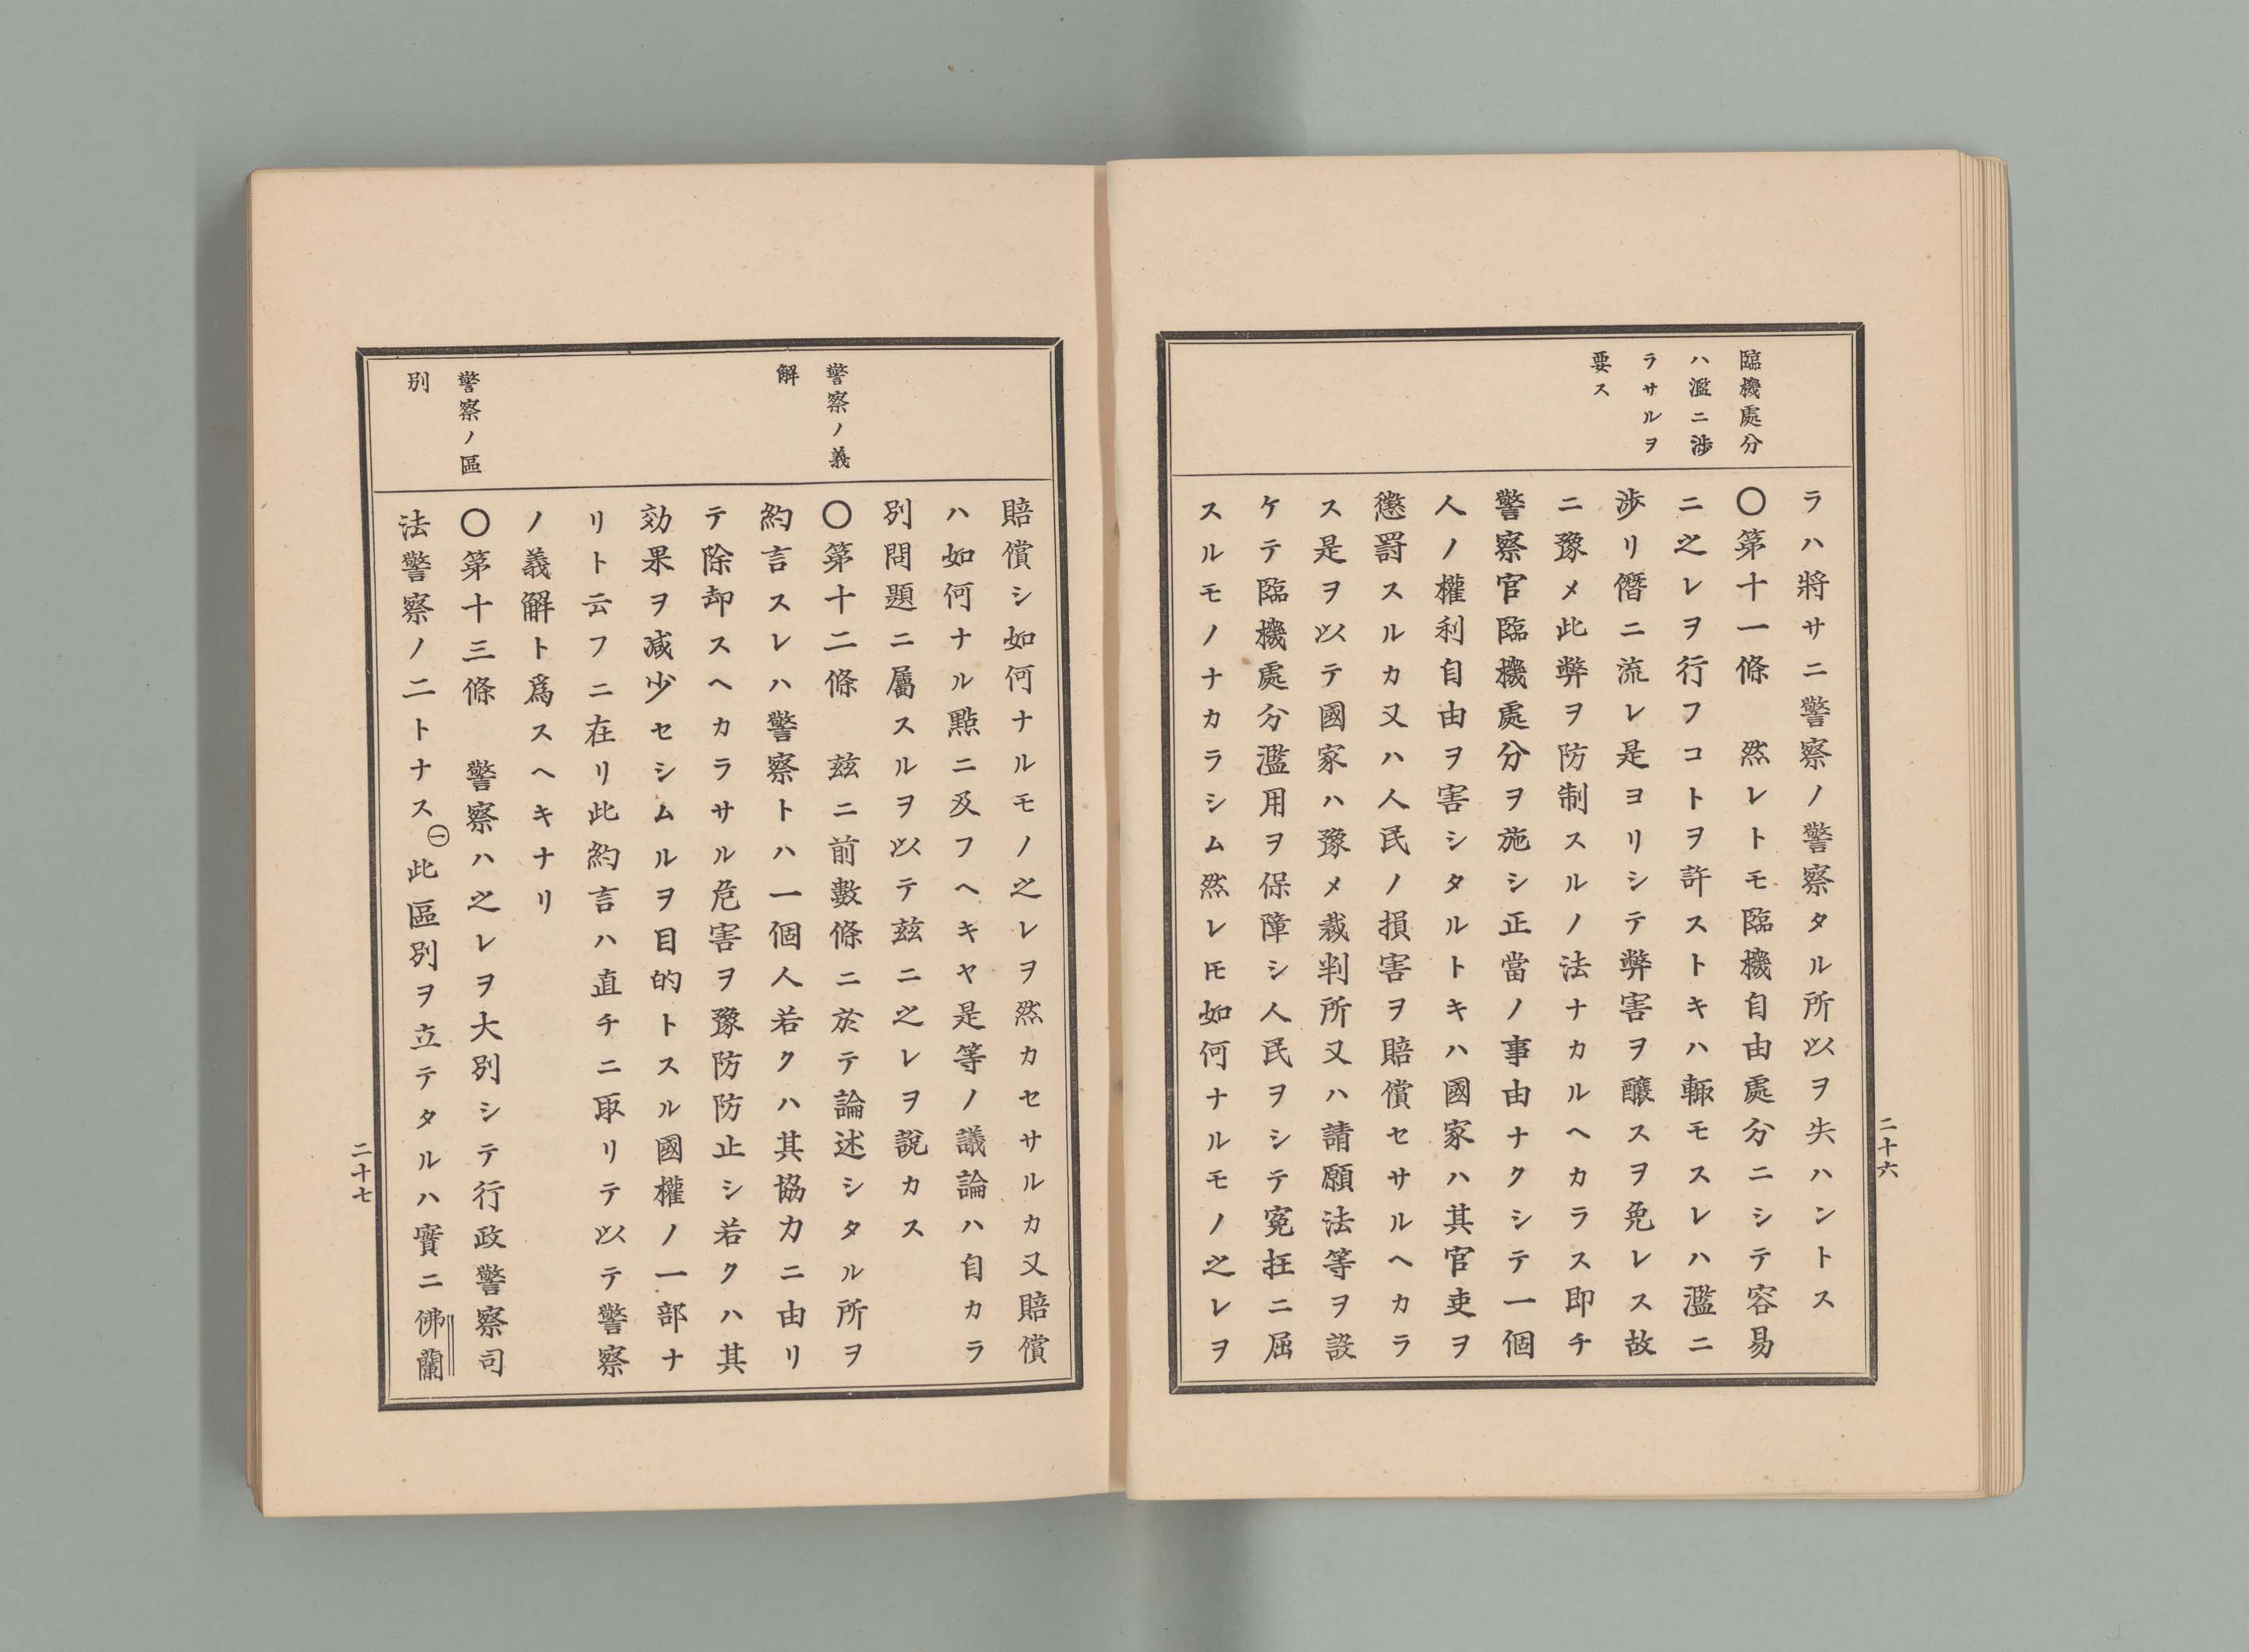 臨機處分
ハ濫ニ渉
ラサルヲ
要ス
ラハ將サニ警察ノ警察タル所以ヲ失ハントス
〇第十一條　然レトモ臨機自由處分ニシテ容易
ニ之レヲ行フコトヲ許ストキハ輙モスレハ濫ニ
渉リ僭ニ流レ是ヨリシテ弊害ヲ釀スヲ免レス故
ニ豫メ此弊ヲ防制スルノ法ナカルヘカラス即チ
警察官臨機處分ヲ施シ正當ノ事由ナクシテ一個
人ノ權利自由ヲ害シタルトキハ國家ハ其官吏ヲ
懲罸スルカ又ハ人民ノ損害ヲ賠償セサルヘカラ
ス是ヲ以テ國家ハ豫メ裁判所又ハ請願法等ヲ設
ケテ臨機處分濫用ヲ保障シ人民ヲシテ寃抂ニ屈
スルモノナカラシム然レ𪜈如何ナルモノ之レヲ
二十六
警察ノ義
解
警察ノ區
別
賠償シ如何ナルモノ之レヲ然カセサルカ又賠償
ハ如何ナル點ニ及フヘキヤ是等ノ議論ハ自カラ
別問題ニ屬スルヲ以テ茲ニ之レヲ說カス
〇第十二條　茲ニ前數條ニ於テ論述シタル所ヲ
約言スレハ警察トハ一個人若クハ其協力ニ由リ
テ除却スヘカラサル危害ヲ豫防防止シ若クハ其
効果ヲ减少セシムルヲ目的トスル國權ノ一部ナ
リト云フニ在リ此約言ハ直チニ取リテ以テ警察
ノ義解ト爲スヘキナリ
〇第十三條　警察ハ之レヲ大別シテ行政警察司
法警察ノ二トナス㊀此區別ヲ立テタルハ實ニ佛蘭
二十七